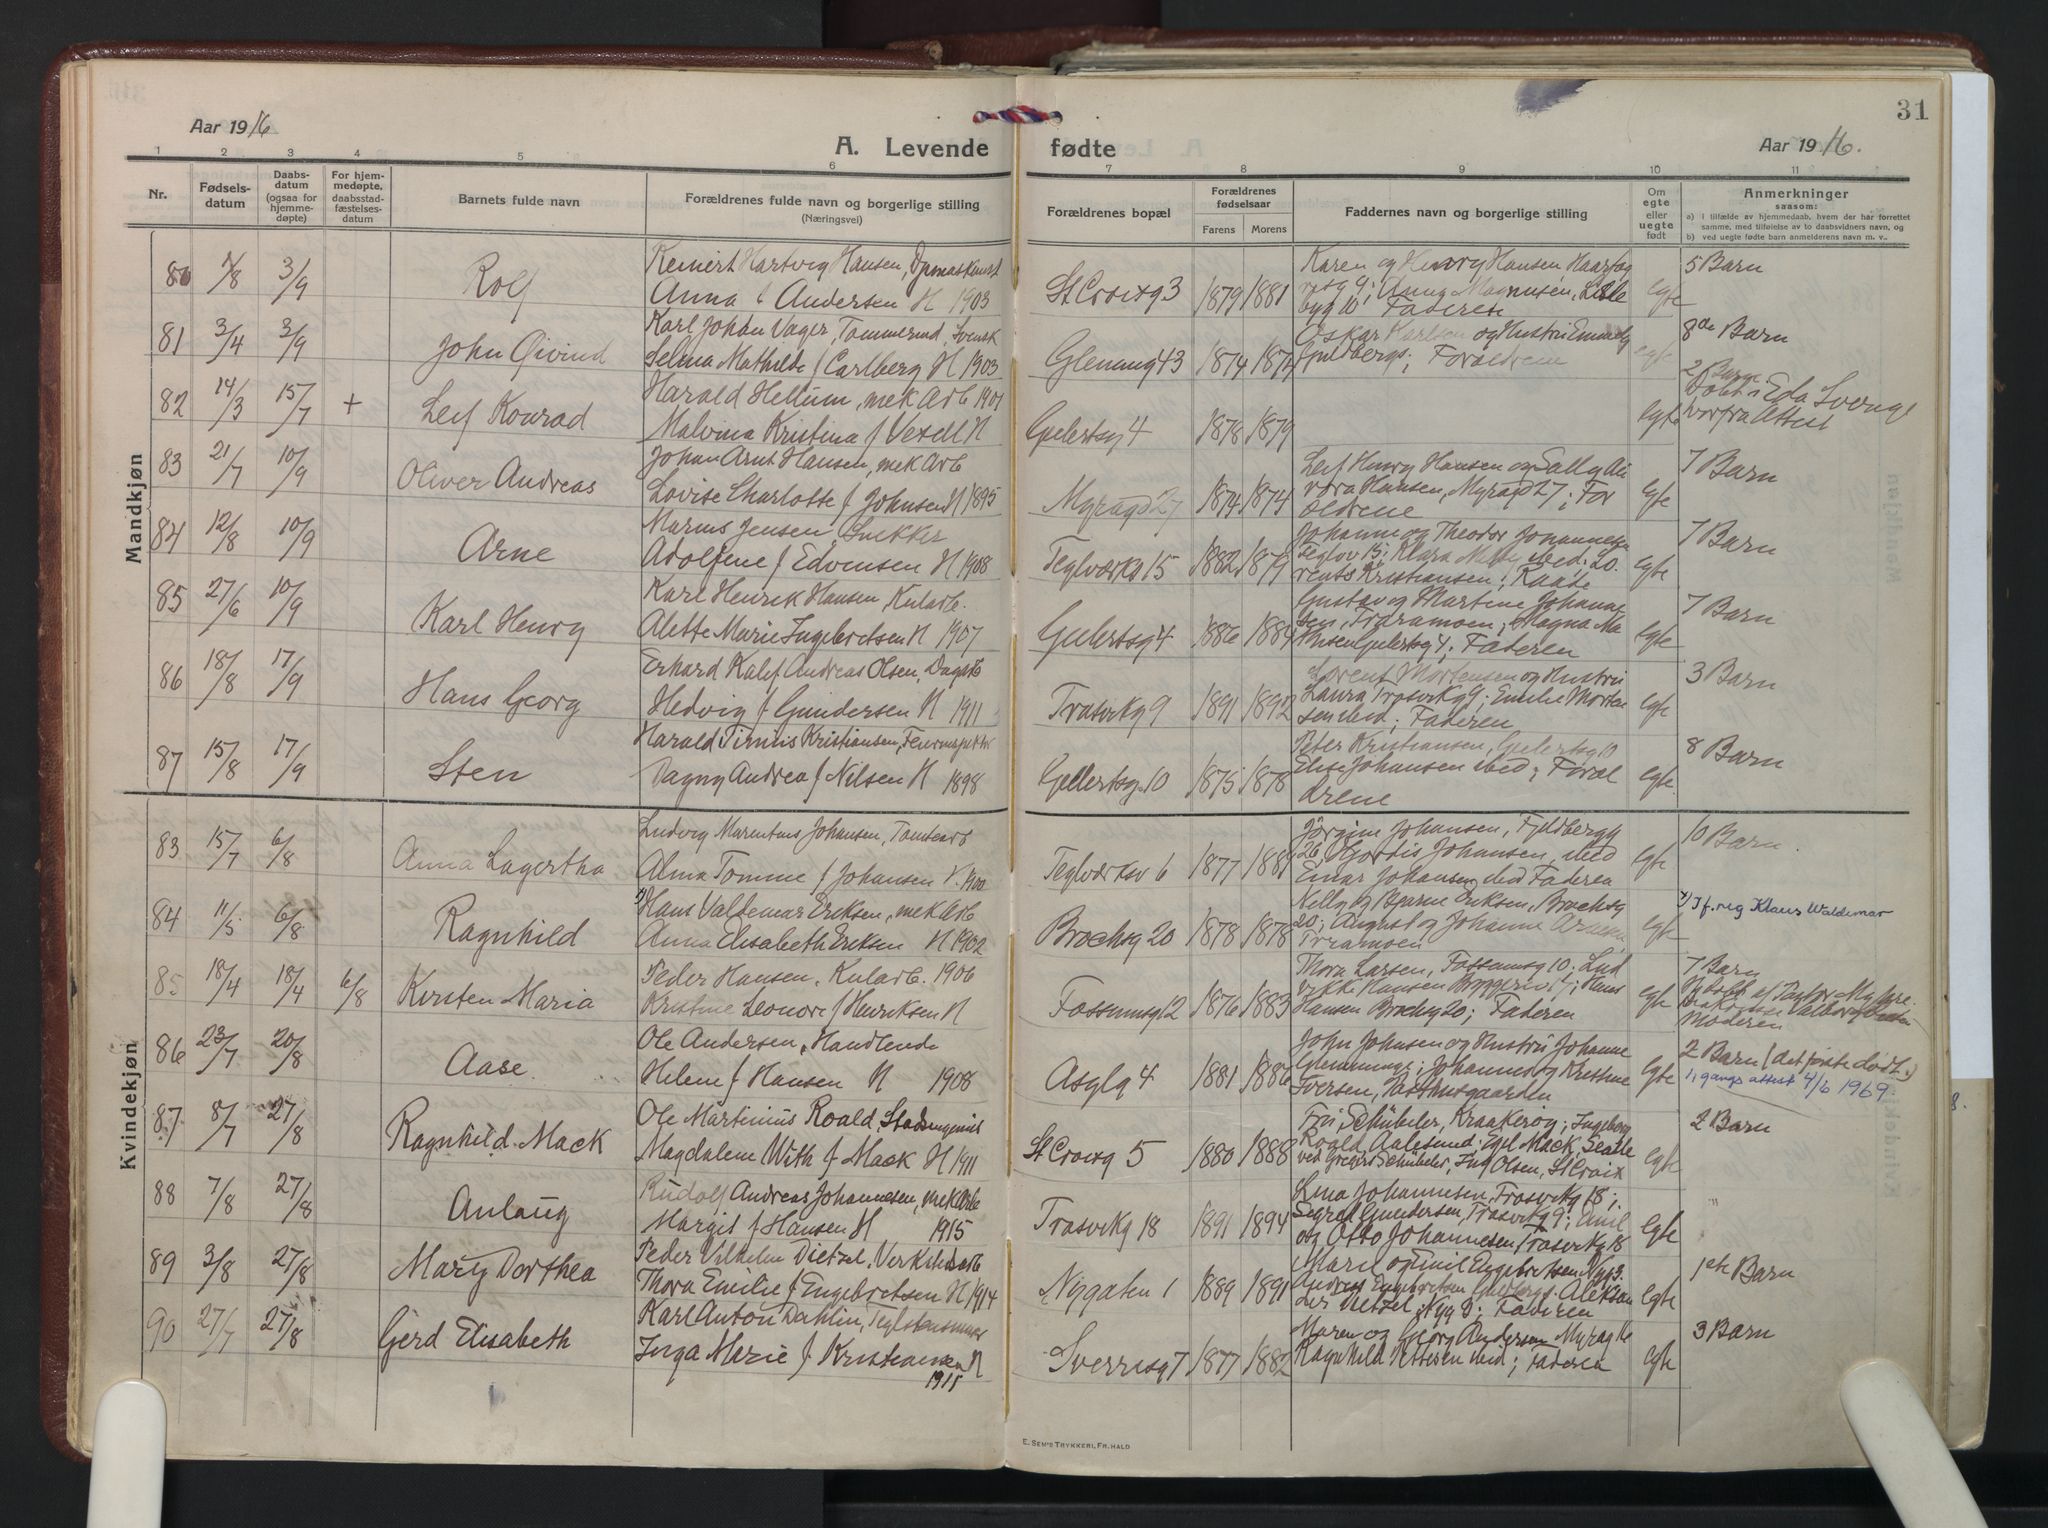 31
Aar 1916
A. Levende fødte
Aar 1916.
1 2 3 4 5 6 7 8 9 10 11
Nr.
Fødsels-
datum
Daabs-
datum
(ogsaa for
hjemme-
døpte)
For hjem-
medøpte,
daabsstad-
fæstelses-
datum
Barnets fulde navn
Forældrenes fulde navn og borgerlige stilling
(Næringsvei)
Forældrenes bopæl
Forældrenes
fødselsaar
Farens Morens
Faddernes navn og borgerlige stilling
Om
egte
eller
uegte
født
Anmerkninger
saasom:
a) i tilfælde av hjemmedaab, hvem der har forrettet
samme, med tilføielse av to daabsvidners navn, og
b) ved uegte fødte barn anmelderens navn m. v..
Mandkjøn
80 7/8 3/9 Rolf
Hartvig Hansen,
Anna f Andersen H 1903
St Croixg 3 1879 1881
Karen og Henry Hansen
Faderen
egte
5 Barn
81 3/4 3/9 John Øivind
Karl Johan Vager, Tømmermd, Svensk
Selma Mathilde f Carlberg H 1903
Glemmg 43 1874
Oskar Karlsen og Hustru
Guldbergs; Forældrene
egte
8de Barn
82 14/3 15/7 + Leif Konrad
Harald Hellum, mek Arb 1901
Malvina Kristina f H
Gelertsg 4 1878 1879
egte
2 Barn
Døbt i Eda Sverige
hvorfra Attest
83 21/7 10/9 Oliver Andreas
Johan Arnt Hansen, mek Arb
Lovise Charlotte f Johnsen H 1895
Myragd 27 1874 1874
Leif Henry Hansen og Sally Al
vora Hansen, Myragd 27; For
ældrene
egte
7 Barn
84 12/8 10/9 Arne
Marius Jensen Snekker
Adolfine f Edvensen H 1908
Teglværksv 15 1882 1879
Johanne og Theodor Johannesen
Teglvv 15; Klara ibid; Lo
rents Kristiansen; Raade
egte
7 Barn
85 27/6 10/9 Karl Henry
Karl Henrik Hansen, Kularb.
Alette Marie Ingebretsen H 1907
Gelertsg 4 1886 1884
Gustav og Martine Johanne
sen, Traramoen; Magna Ma
thisen Gelertsg 4; Faderen
egte
7 Barn
86 18/8 17/9 Hans Georg
Erhard Kalef Andreas Olsen, Dagarb
Hedvig f Gundersen H 1911
Trosvikg 9 1891 1892
Lorent Mortensen og Hustru
Laura Trosvikg 9; Emilie Morten
sen ibid; Faderen
egte
3 Barn
87 15/8 17/9 Sten
Harald Kristiansen,
Dagny Andrea f Nilsen H 1898
Gellertsg. 10 1875 1878
Peter Kristiansen, Gelertsg 10
Elise Johansen ibid; Foræl
drene
egte
8 Barn
Kvindekjøn
83 15/7 6/8 Anna Lagertha
Ludvig Marentius Johansen, Tomtearb
Alma Tomine f Johansen H. 1900
Teglværksv 6 1877 1881
Jørgine Johansen, Fjeldbergg
26, Hjørdis Johansen, ibid
Einar Johansen, ibid Faderen
egte
10 Barn.
84 11/5 6/8 Ragnhild
x) Hans Valdemar Eriksen, mek Arb
Anna Elisabeth Eriksen H 1902
Brochsg 20 1878 1878
Nelly og Bjarne Eriksen, Brochsg
20; August og Johanne
Traramoen
egte
x) If. reg Klaus Waldemar
85 18/4 18/4 6/8 Kirsten Maria
Peder Hansen, Kularb. 1906
Kristine Leonore f Henriksen H
Fossumsg 12 1876 1883
Thora Larsen, Fossumsg 10; Lud
vikke Hansen 7; Hans
Hansen Brochsg 20; Faderen
egte
7 Barn
Hjdøbt af Pastor Myhre.
Moderen
86 23/7 20/8 Aase.
Ole Andersen, Handlende
Helene f Hansen H 1908
Asylg 4 1881 1886
John Johnsen og Hustru Johanne
Glemmingg; Johannes og Kristine
Iversen,
egte
2 Barn (det første død.)
1. gangs attest 4/6 1969.
87 8/7 27/8 Ragnhild Mack
Ole Martinius Roald, Stadsingeniør
Magdalene With f Mack H 1911
St Croixg 5 1880 1888
Fru Schübeler, Kraakerøy; Ingeborg
Roald, Aalesund; Egil Mack, Seatle
ved Gregers Schübeler; Ing Olsen, St Croix
egte
2 Barn
88 7/8 27/8 Anlaug
Rudolf Andreas Johannesen, mek Arb
Margit f Hansen H 1915
Trosvikg 18 1891 1894
Lina Johannesen, Trosvikg 18;
Sigrid Gundersen, Trosvikg 9; Emil
og Otto Johannesen, Trosvikg 18
egte
"
89 3/8 27/8 Mary Dorthea
Peder Vilhelm Dietzel, Verkstedsarb
Thora Emilie f Engebretsen H 1914
Nygaten 1 1889 1891
Marie og Emil Engebretsen Nyg 3.
Andreas Engebretsen Guldbergs. Aleksan
der Faderen
egte
1ste Barn
90 27/7 27/8 Gerd Elisabeth
Karl Anton Dahlin,
Inga Marie f Kristiansen H
1915
Sverresg 7 1877 1882
Maren og Georg Andersen Myrag 16
Ragnhild ibid; Faderen
egte
3 Barn
8.
E. SEM'S TRYKKERI, FR.HALD